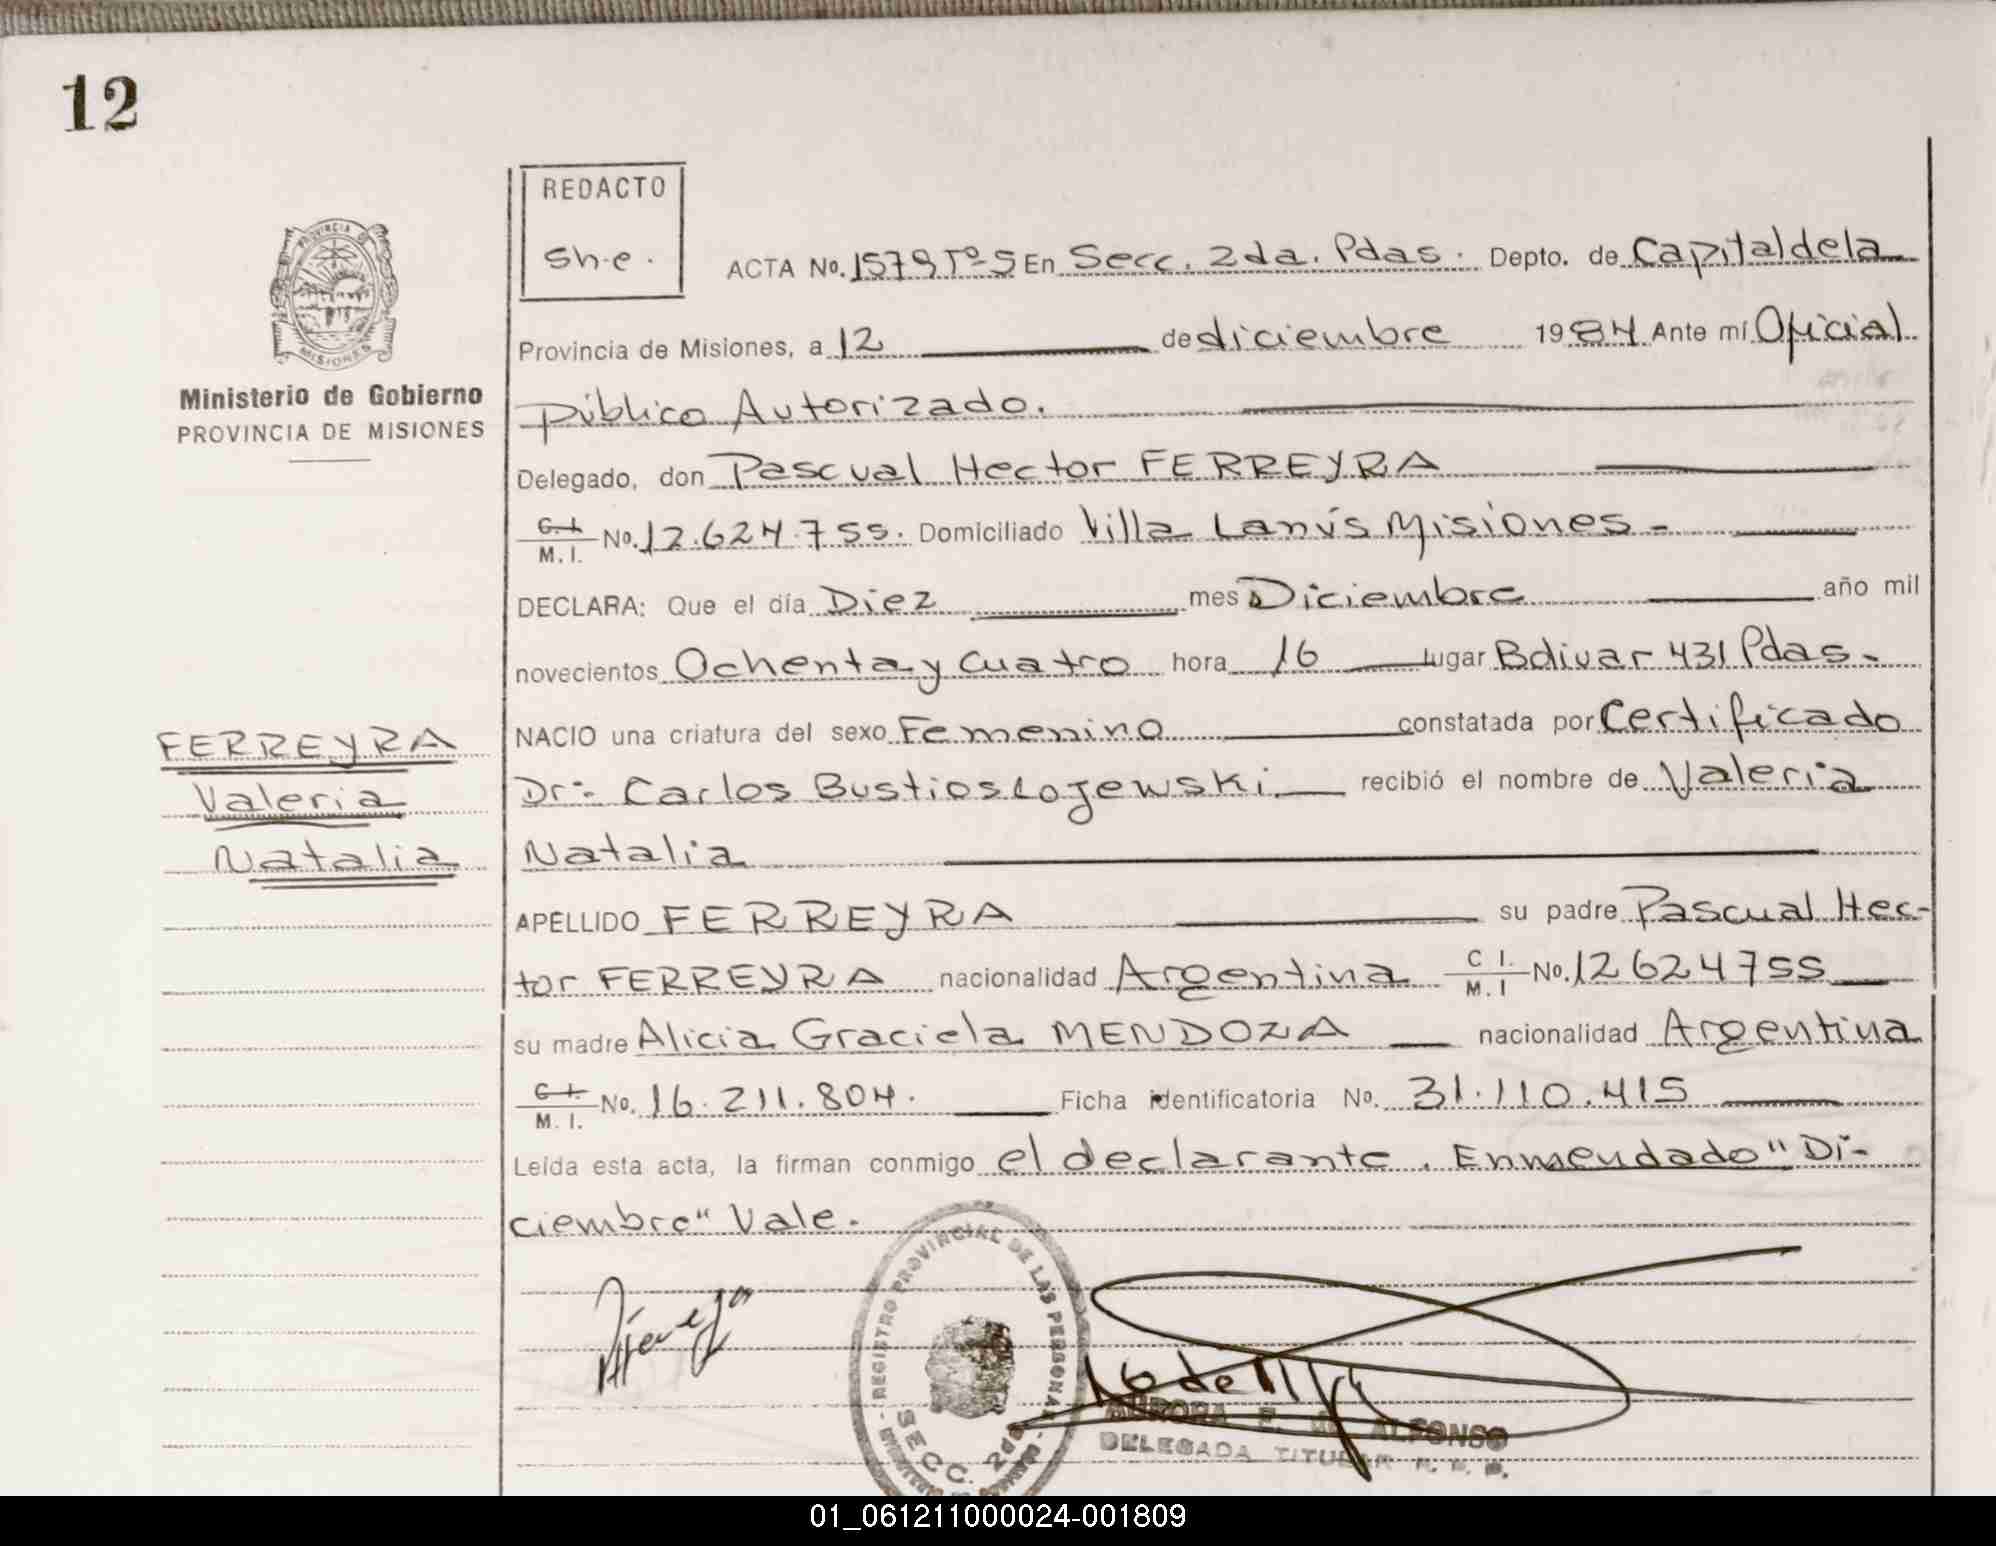 12
REDACTO
sh.e.
PROVINCIA DE
MISIONES
Ministerio de Gobierno
PROVINCIA DE MISIONES
FERREYRA
Valeria
Natalia
ACTA No. 1579 Tº-5 En Secc. 2da. Pdas. Depto. de Capital de la
Provincia de Misiones, a 12 de diciembre 1984 Ante mí Oficial
público Autorizado.
Delegado, don Pascual Hector FERREYRA
C.I. M.I. No. 12.624.755. Domiciliado Villa Lanús Misiones-
DECLARA: Que el día Diez mes Diciembre año mil
novecientos Ochenta y Cuatro hora 16 lugar Bolivar 431 Pdas-
NACIO una criatura del sexo Femenino constatada por Certificado
Dr:- Carlos Bustios Lojewski recibió el nombre de Valeria
Natalia
APELLIDO FERREYRA su padre Pascual Hec-
tor FERREYRA nacionalidad Argentina C I. M. I No. 12624755
su madre Alicia Graciela MENDOZA nacionalidad Argentina
C.I. M. I. No. 16.211.804. Ficha identificatoria No. 31.110.415
Leída esta acta, la firman conmigo el declarante. Enmendado "Di-
ciembre" Vale.
REGISTRO PROVINCIAL DE LAS PERSONAS
SECC. 2da
AURORA F. ALFONSO
DELEGADA TITULAR
01_061211000024-001809